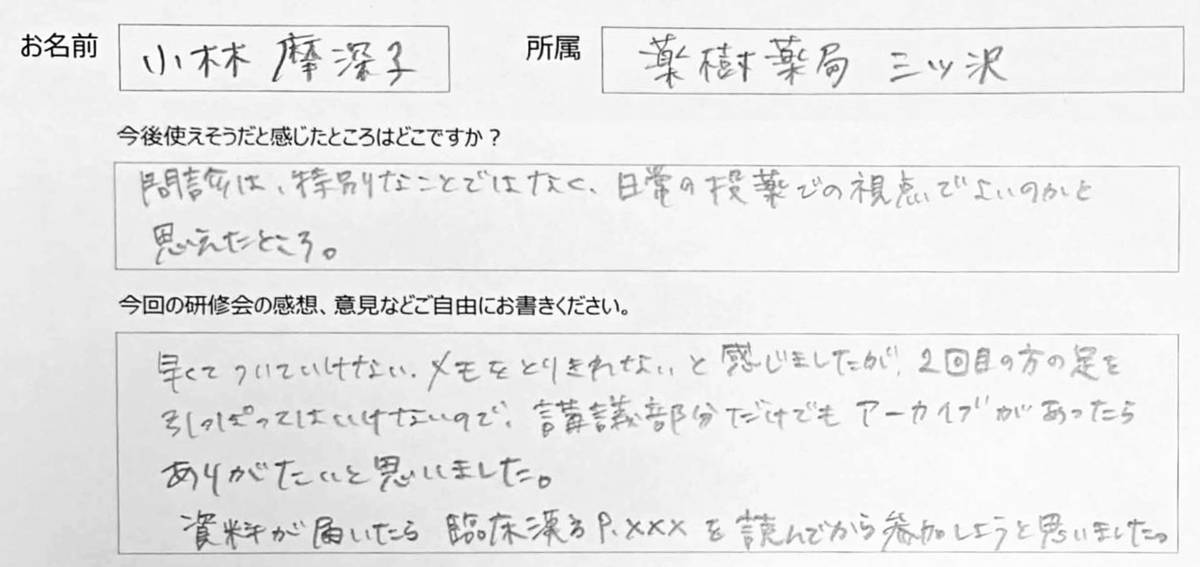 お名前 小林 摩深子 所属 薬樹薬局 三ツ沢
今後使えそうだと感じたところはどこですか？
問診は、特別なことではなく、日常の投薬での視点でよいのかと
思えたところ。
今回の研修会の感想、意見などご自由にお書きください。
早くてついていけない、メモをとりきれないと感じましたが、2回目の方の足を
引っぱってはいけないので、講義部分だけでもアーカイブがあったら
ありがたいと思いました。
資料が届いたら 臨床漢方 P.XXX を読んでから参加しようと思いました。